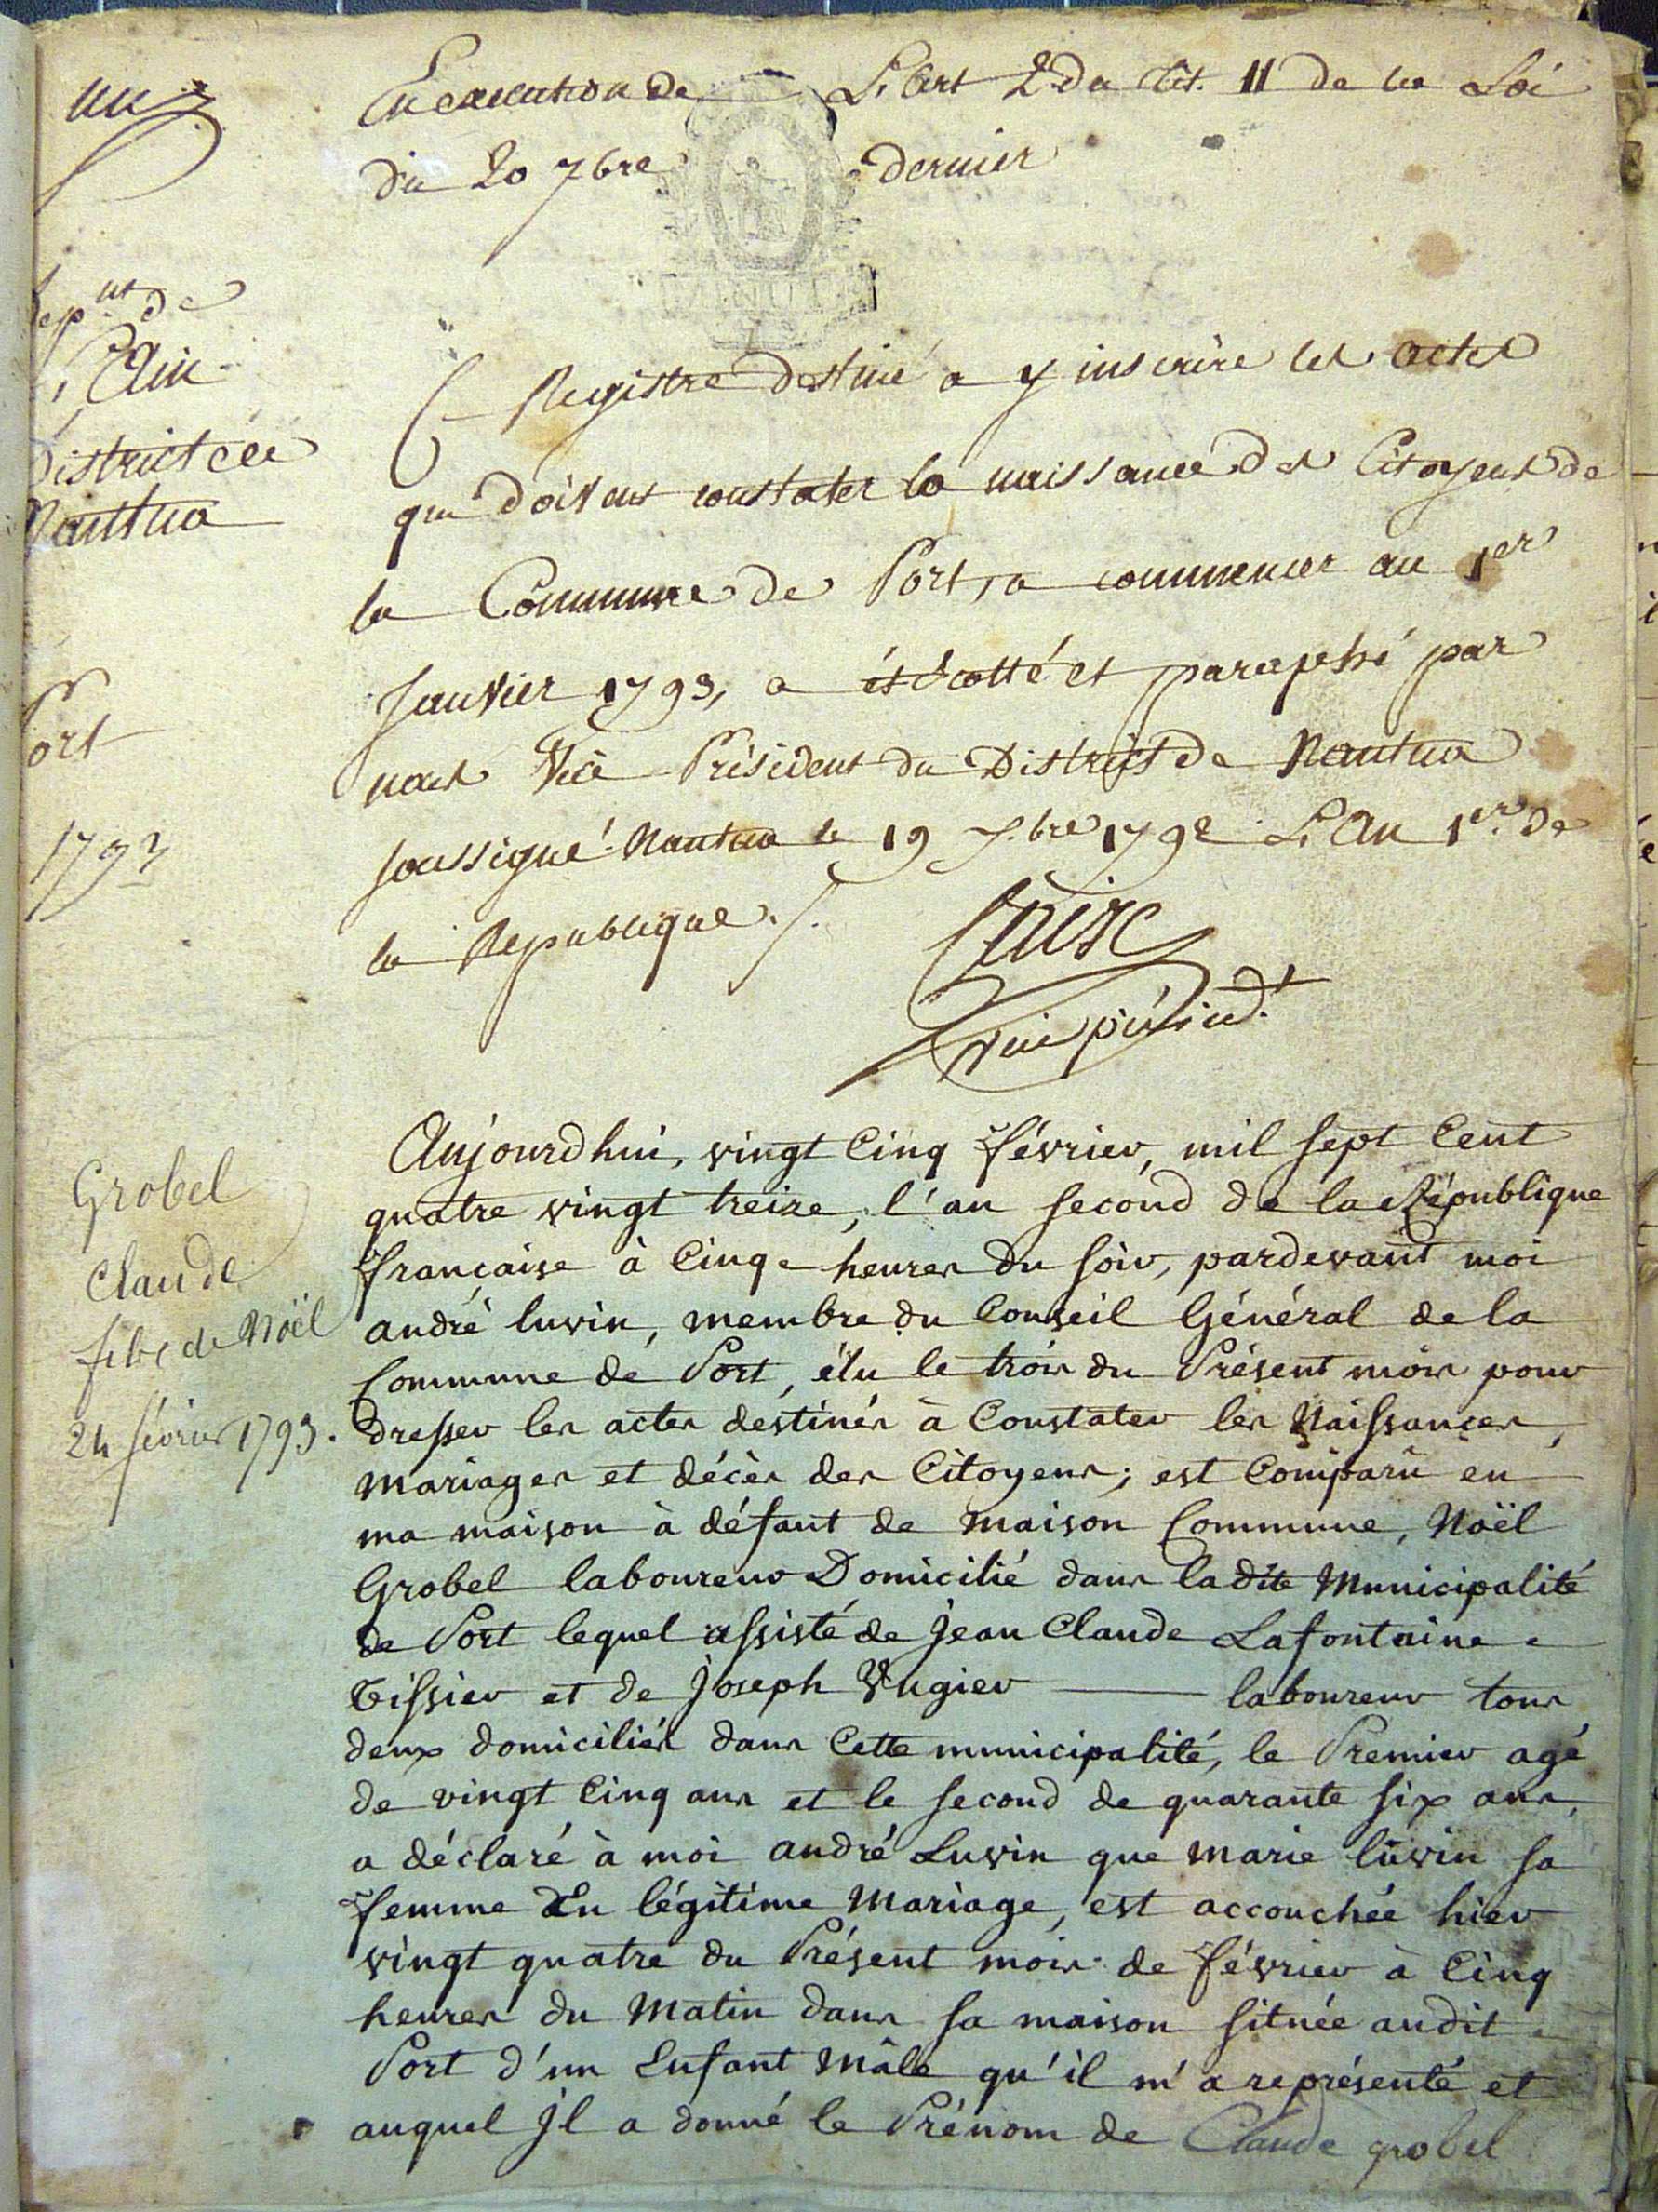 un
En execution de L'art 2 du tit. 11 de la Loi
du 20 7bre dernier
Dep.nt de
L'Ain
District de
Nantua
Port
1793
Registre destiné a y inscrire les actes
qui doivent constater la naissance des Citoyens de
la Commune de Port, a commencer au 1er
Janvier 1793, a été cotté et paraphé par
nous Vice Président du District de Nantua
soussigné. Nantua le 19 Xbre 1792 L'an 1er de
la République ./.
vice présid.t
Grobel
Claude
fils de Noël
24 février 1793.
Aujourdhui, vingt Cinq février, mil sept Cent
quatre vingt treize, l'an second de la République
française à Cinq heures du soir, pardevant moi
andré luvin, membre du Conseil Général de la
Commune de Port, élu le trois du Présent mois pour
dresser les actes destinés à Constater les Naissances,
Mariages et décès des Citoyens; est Comparu en
ma maison à défaut de maison Commune, Noël
Grobel laboureur Domicilié dans ladite Municipalité
de Port lequel assisté de Jean Claude Lafontaine
Tissier et de Joseph Vugier laboureur tous
deux domiciliés dans Cette municipalité, le Premier agé
de vingt Cinq ans et le second de quarante six ans,
a déclaré à moi andré Luvin que Marie luvin sa
femme En légitime Mariage, est accouchée hier
vingt quatre du Présent mois de février à Cinq
heures du Matin dans sa maison située audit
Port d'un Enfant Mâle qu'il m'a représenté et
auquel Jl a donné le Prénom de Claude grobel